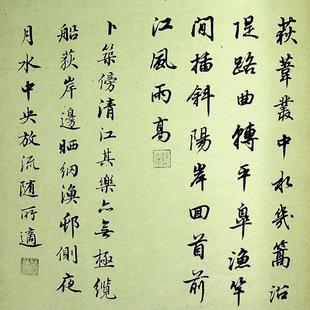 荻葦叢中水幾篙沿
隄路曲轉平皐漁竿
間插斜陽岸回首前
江風雨高
卜築傍清江其樂亦無極纜
船荻岸邊晒網漁邨側夜
月水中央放流随所適